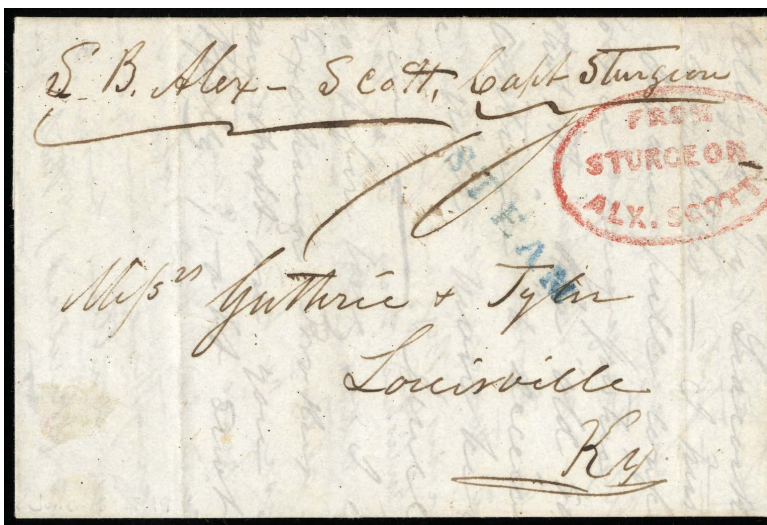 S. B. Alex- Scott, Capt Sturgeon
FROM
STURGEON
ALX. SCOTT
10
STEAM
Messrs Guthrie & Tyler
Louisville
Ky